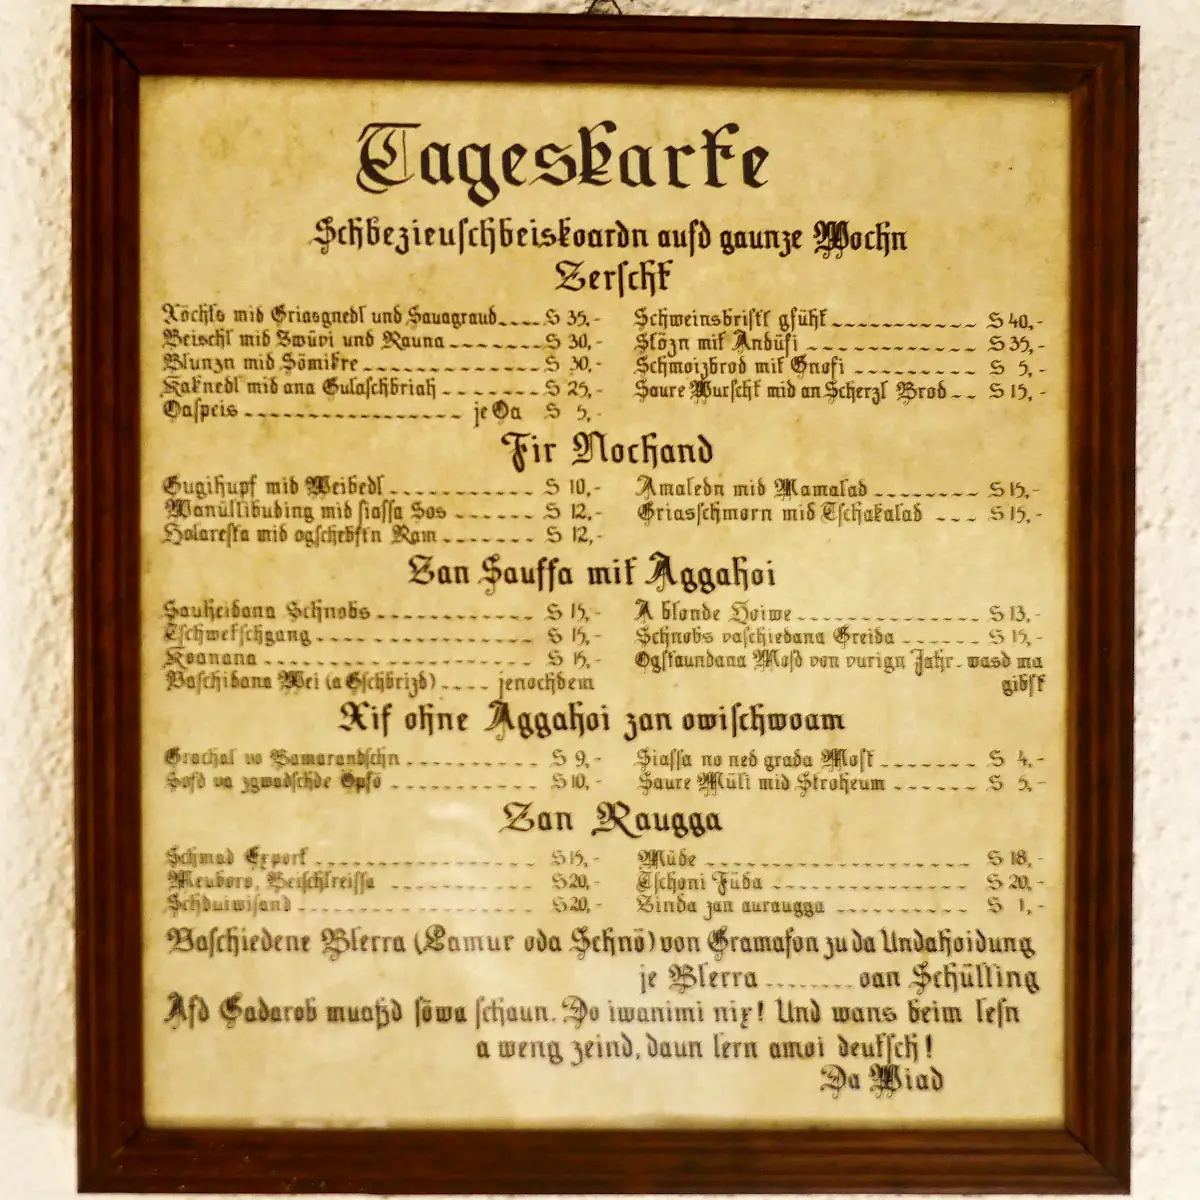 Tageskarte
Schbezieuschbeiskoardn aufd gaunze Wochn
Zerscht
Köchts mid Griasgnedl und Sauagraud.... S 35,-
Beischl mid Zwüvi und Rauna ....... S 30,-
Blunzn mid Sömikre .............. S 30,-
Kaknedl mid ana Gulaschbriah ....... S 25,-
Oaspeis .................. je Oa S 5,-
Schweinsbristl gfüht ........... S 40,-
Stözn mit Andüfi ............. S 35,-
Schmoizbrod mit Gnofi .......... S 5,-
Saure Wurscht mid an Scherzl Brod .. S 15,-
Fir Nochand
Gugihupf mid Weibedl ........... S 10,-
Wanüllibuding mid siassa Sos ...... S 12,-
Holaresta mid ogschebftn Ram ....... S 12,-
Amaledn mid Mamalad ........ S 15,-
Griasschmorn mid Tschakalad ... S 15,-
Zan Sauffa mit Aggahoi
Sauheidana Schnobs ............. S 15,-
Tschwetschgang ................. S 15,-
Koanana ..................... S 15,-
Vaschidana Wei (a Gschbrizd) .... jenochdem
A blonde Hoiwe ............... S 13,-
Schnobs vaschiedana Greida ...... S 15,-
Ogstaundana Most von vurign Jahr - wasd ma
gibst
Xif ohne Aggahoi zan owischwoam
Grachal vo Bamarandschn .......... S 9,-
Soft va zgwadschde Öpfö ........... S 10,-
Siassa no ned grada Most ....... S 4,-
Saure Müli mid Stroheum ...... S 5,-
Zan Raugga
Schmad Export ................. S 15,-
Meuboro, Beischlreissa ........... S 20,-
Schduiwisand .................. S 20,-
Müde .................... S 18,-
Tschoni Füda .............. S 20,-
Zinda zan auraugga .......... S 1,-
Vaschiedene Blerra (Lamur oda Schnö) von Gramafon zu da Undahoidung
je Blerra ........ oan Schülling
Afd Gadarob muaßd söwa schaun. Do iwanimi nix! Und wans beim lesn
a weng zeind, daun lern amoi deutsch!
Da Wiad